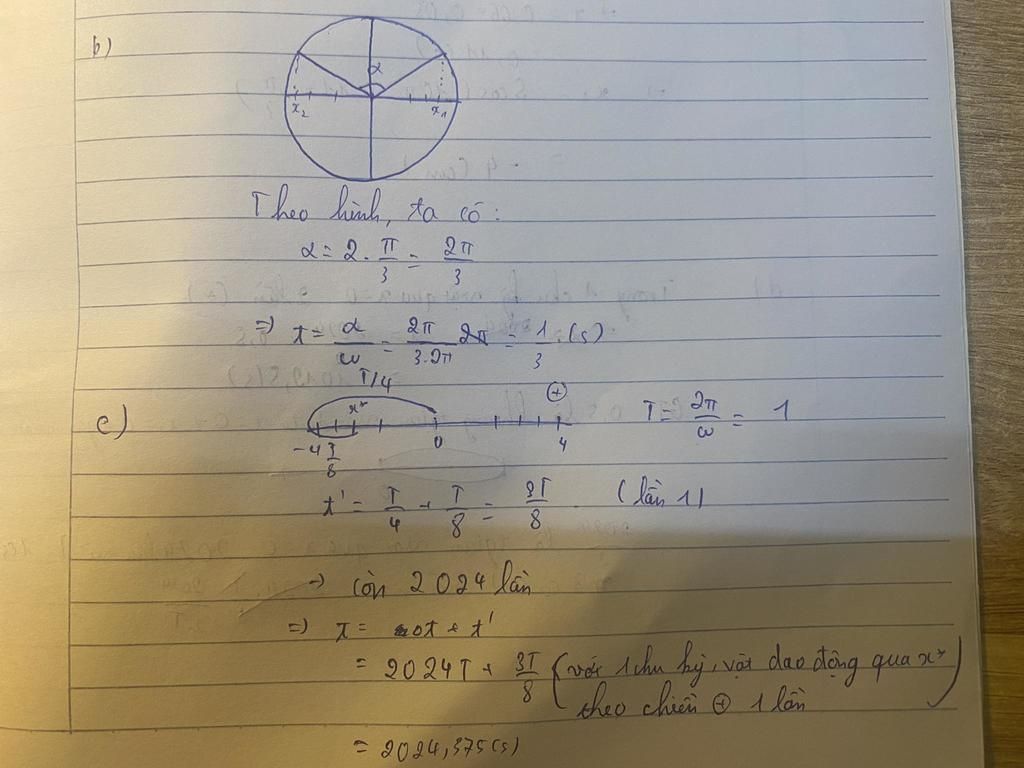 b)
α
x₂ x₁
Theo hình, ta có:
α = 2 . π/3 = 2π/3
=> t = α/ω = 2π/3.2π = 1/3 (s)
T/4
c) x* ⊕ T = 2π/ω = 1
-4 T/8 0 4
t' = T/4 + T/8 = 3T/8 (lần 1)
=> còn 2024 lần
=> t = t + t'
= 2024T + 3T/8 (với 1 chu kỳ, vật dao động qua x*
theo chiều ⊕ 1 lần)
= 2024,375(s)